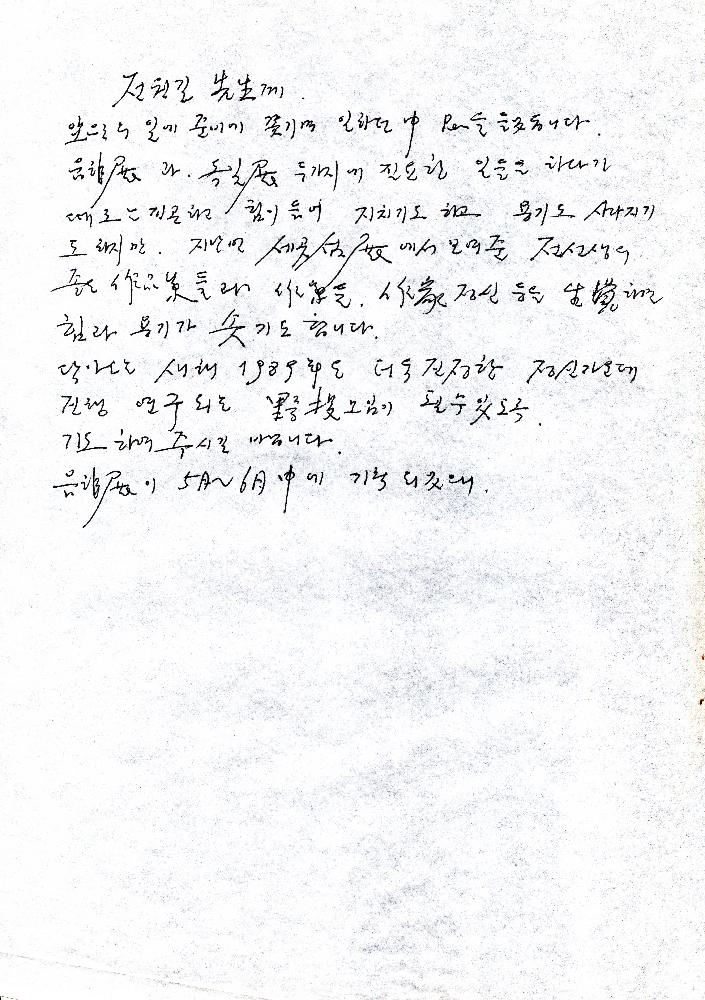 전원길 先生께.
앞으로의 일에 준비에 쫓기며 일하던 中 Pen을 들었습니다.
음향展 과. 독일展 두가지에 필요한 일들을 하다가
때로는 피곤하고 힘이들어 지치기도 하고 용기도 사라지기
도 하지만. 지난번 展에서 보여준 전선생의
좋은 作品들과 作業들, 作家정신 등을 生覺하면
힘과 용기가 솟기도 합니다.
닥아오는 새해 1989年은 더욱 진정한 정신가운데
진행 연구되는 野投모임이 될수있도록.
기도하여 주시길 바랍니다.
음향展이 5月~6月中에 기획되겠네.